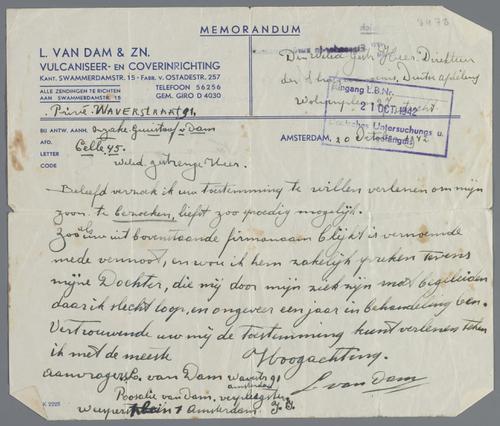 MEMORANDUM
8478
L. VAN DAM & ZN.
VULCANISEER- EN COVERINRICHTING
KANT. SWAMMERDAMSTR. 15 - FABR. V. OSTADESTR. 257
ALLE ZENDINGEN TE RICHTEN
AAN SWAMMERDAMSTR. 15
TELEFOON 56256
GEM. GIRO D 4030
Privé. WAVERSTRAAT 91.
Directeur
der
Eingang L.B.Nr.
21 OCT. 1942
Untersuchungs u.
BIJ ANTW. AANH.
Dam
AFD.
Celle 45.
LETTER
CODE
AMSTERDAM, 20 October 1942
Weled. gestrenge Heer.
Beleefd verzoek ik uw toestemming te willen verleenen om mijn
zoon te bezoeken, liefst zoo spoedig mogelijk.
Zoo als uw uit bovenstaande firmanaam blijkt is vernoemde
mede vennoot, en wou ik hem zakelijk spreken tevens
mijne Dochter, die mij door mijn ziek zijn moet begeleiden
daar ik slecht loop, en ongeveer een jaar in behandeling ben.
Vertrouwende uw mij de toestemming kunt verleenen teken
ik met de meeste Hoogachting.
aanvragers L. van Dam Waverstr 91
amsterdam
L. van Dam
Roosalie van Dam. verpleegster
Weesperplein 1 Amsterdam
K 2225